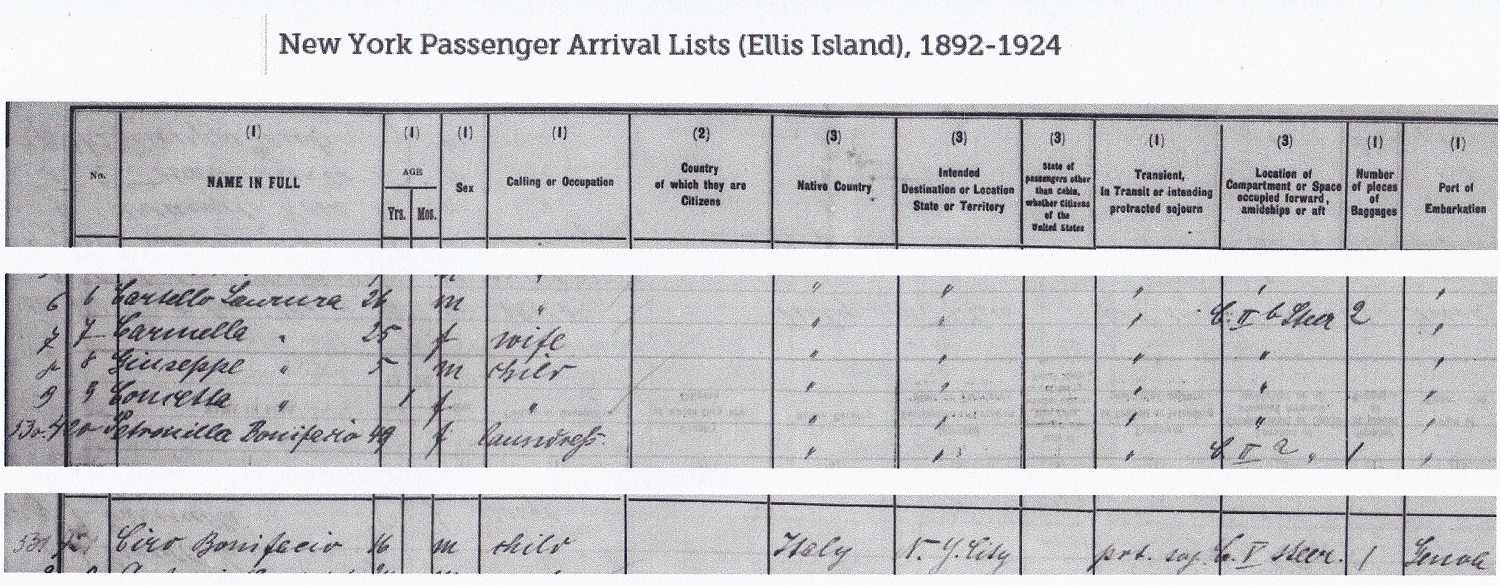 New York Passenger Arrival Lists (Ellis Island), 1892-1924
No. (1) NAME IN FULL (1) AGE Yrs. Mos. (1) Sex (1) Calling or Occupation (2) Country of which they are Citizens (3) Native Country (3) Intended Destination or Location State or Territory (3) State of passengers other than Cabin, whether Citizens of the United States (1) Transient, In Transit or intending protracted sojourn (3) Location of Compartment or Space occupied forward, amidships or aft (1) Number of pieces of Baggages (1) Port of Embarkation
6 6 26 m " " " " " "
7 7 Carmella " 25 f wife " " " C. II b Steer 2 "
8 Giuseppe " 5 m child " " " " "
9 9 Concetta " 1 f " " " " " "
Petronilla Bonifacio 49 f laundress " " " C. II a " 1 "
531 Ciro Bonifacio 16 m child Italy N. Y. City prt. soj. C. V steer. 1 Genoa